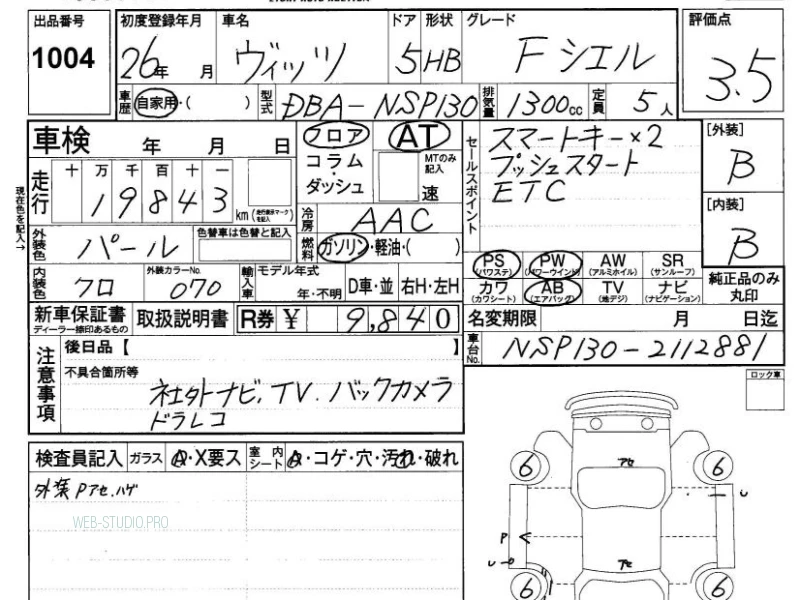 出品番号 初度登録年月 車名 ドア 形状 グレード 評価点
1004 26年 月 ヴィッツ 5 HB F シエル 3.5
車歴 自家用・( ) 型式 DBA-NSP130 排気量 1300cc 定員 5人
車検 年 月 日 フロア AT セールスポイント スマートキー×2 [外装]
コラム・ダッシュ MTのみ記入 速 プッシュスタート B
走行 十 万 千 百 十 一 ETC
1 9 8 4 3 km 冷房 AAC [内装]
現在色を記入→
外装色 パール 色替車は色替と記入 燃料 ガソリン・軽油・( ) B
PS (パワステ) PW (パワーウインド) AW (アルミホイル) SR (サンルーフ)
内装色 クロ 外装カラーNo. 070 輸入車 モデル年式 年・不明 D車・並 右H・左H カワ (カワシート) AB (エアバック) TV (地デジ) ナビ (ナビゲーション) 純正品のみ丸印
新車保証書 ディーラー捺印あるもの 取扱説明書 R券 ¥ 9,840 名変期限 月 日迄
注意事項 後日品【 】 車台No. NSP130-2112881
不具合箇所等 ロック車
社外ナビ, TV. バックカメラ
ドラレコ
検査員記入 ガラス A・X要ス 室内シート A・コゲ・穴・汚れ・破れ
外装 Pアセ.ハゲ
WEB-STUDIO.PRO
6 アセ 6
U
P
U
6 アセ 6